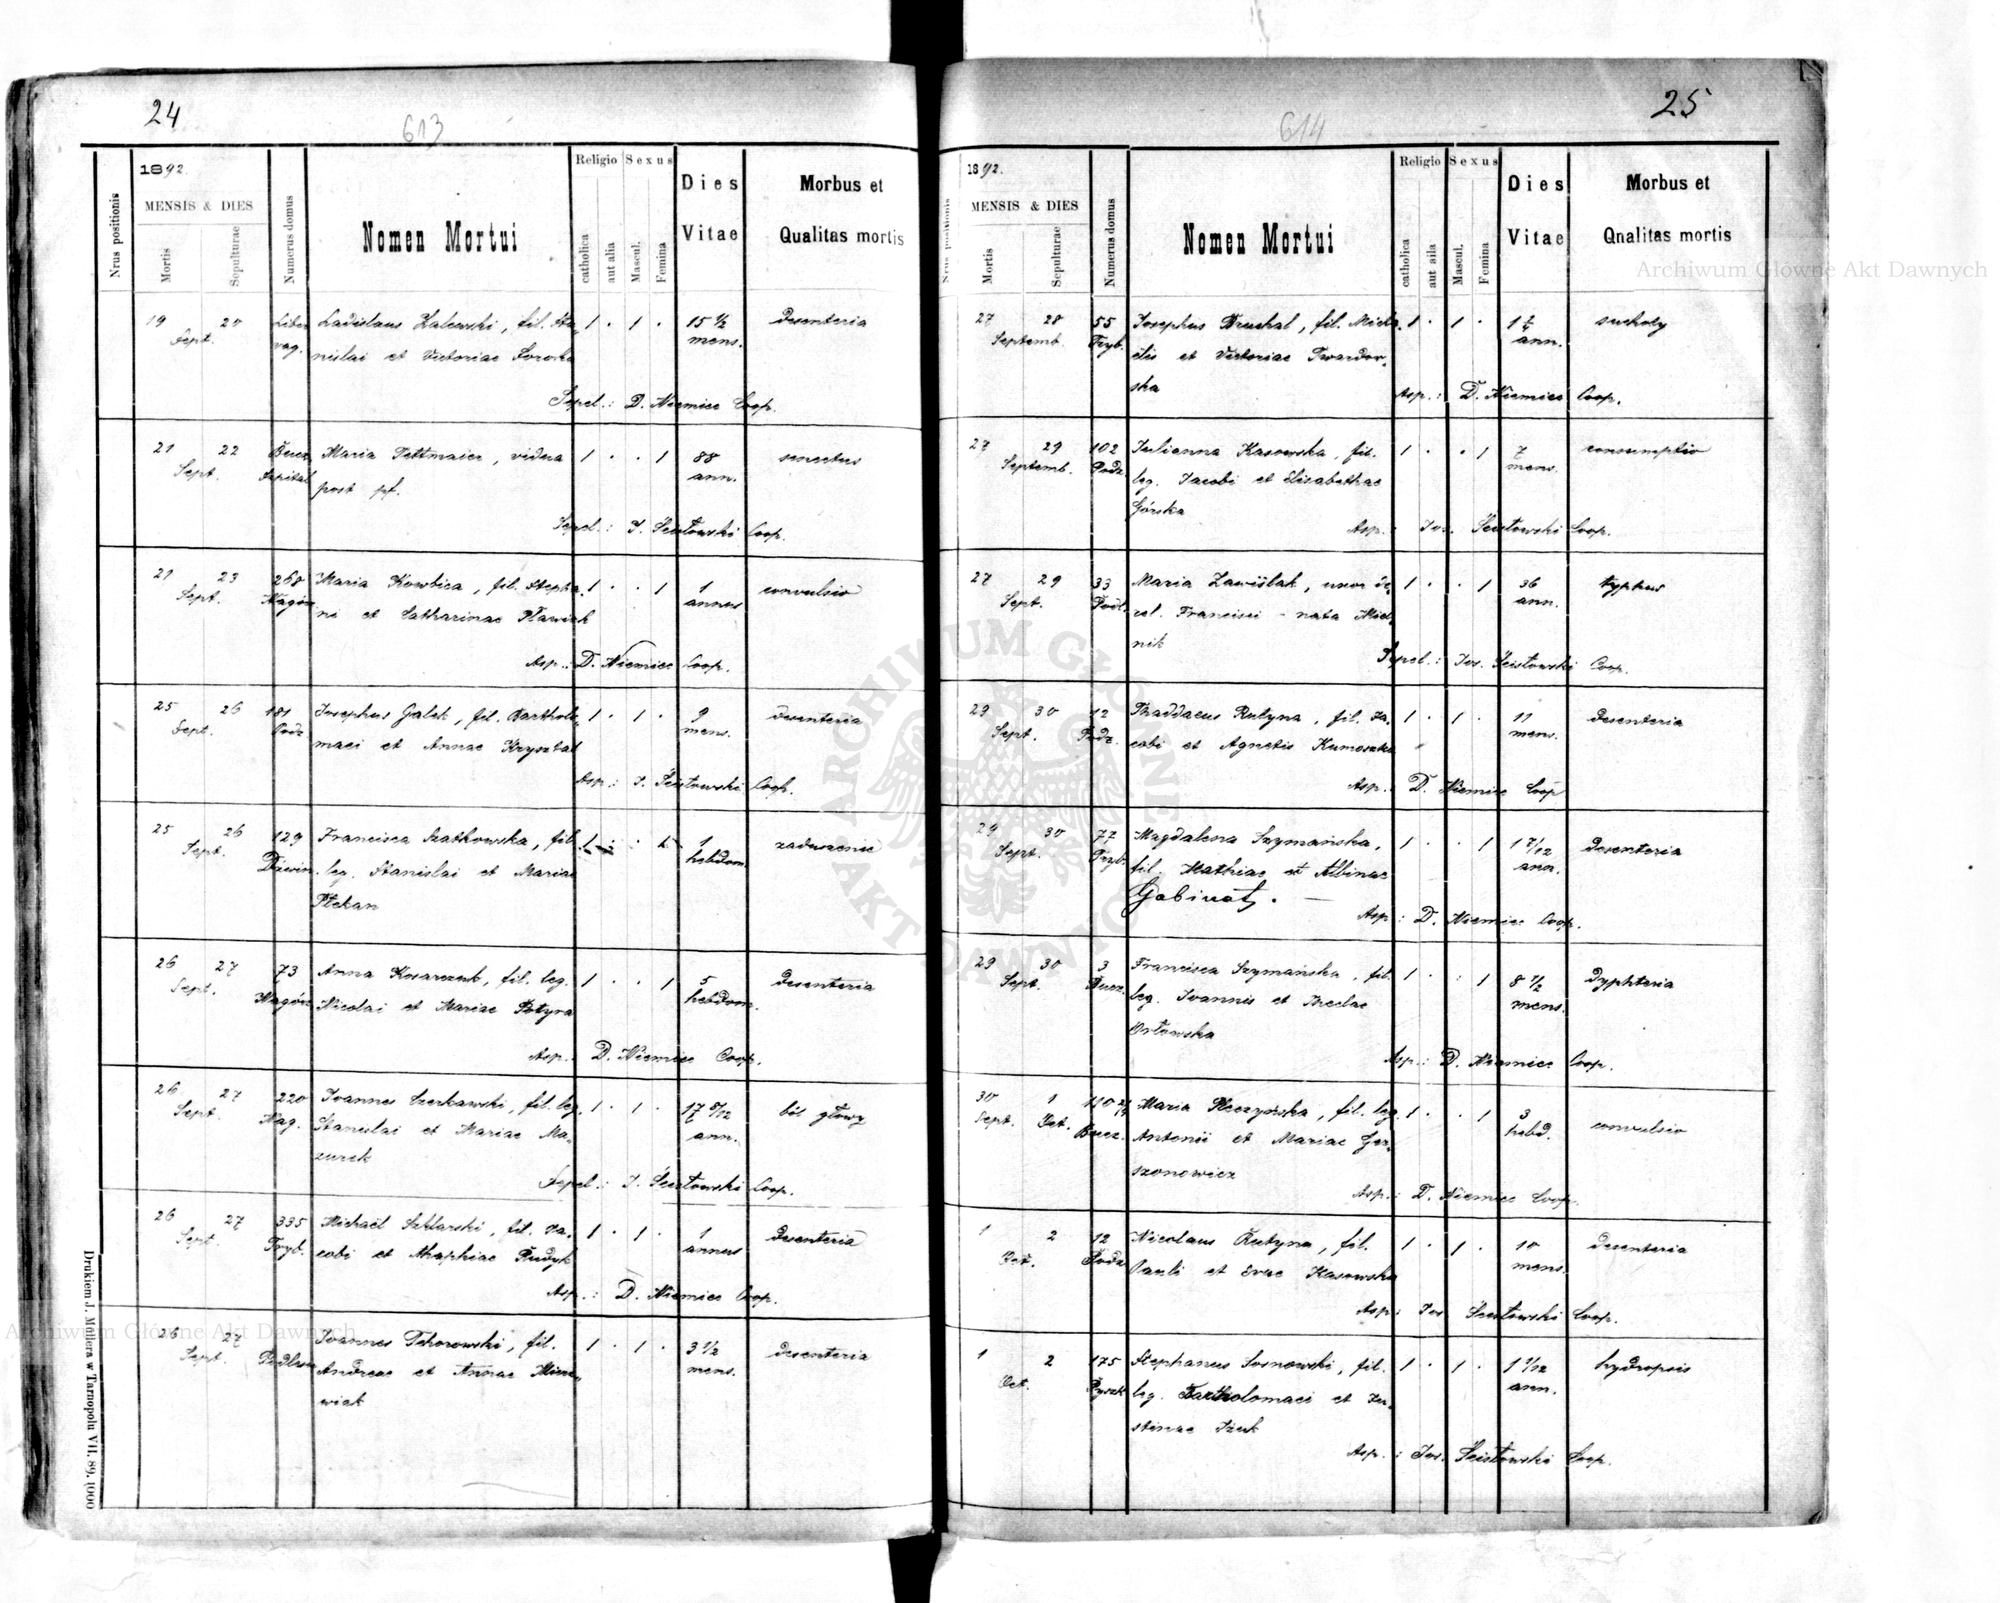 24
613
1892.
MENSIS & DIES
Nrus positionis
Mortis
Sepulturae
Numerus domus
Nomen Mortui
Religio
Sexus
catholica
aut alia
Mascul.
Femina
Dies Vitae
Morbus et
Qualitas mortis
19 20 Liber Ladislaus Zalewski, fil. Sta- 1 . 1 . 15 ½ desenteria
Sept. vag. nislai et Victoriae Soroka mens.
Sepel.: D. Niemiec Coop.
21 22 Bucz. Maria Tettmaier, vidua 1 . . 1 88 senectus
Sept. szpital post pf. ann.
Sepel.: J. Ścisłowski Coop.
21 23 268 Maria Kowbica, fil. Stepha- 1 . . 1 1 convulsio
Sept. Nagór. ni et Catharinae annus
Asp.: D. Niemiec Coop.
25 26 181 Josephus Galek, fil. Bartholo- 1 . 1 . 9 desenteria
Sept. Podz. maei et Annae Kryształ mens.
Asp.: J. Ścisłowski Coop.
25 26 129 Francisca Szatkowska, fil. 1 1
Sept. leg. Stanislai et Mariae hebdom.
Ptekan
26 27 73 Anna Kosarczuk, fil. leg. 1 . . 1 5 desenteria
Sept. Nagór. Nicolai et Mariae Potyra hebdom.
Asp.: D. Niemiec Coop.
26 27 220 Joannes Szerkawski, fil. leg. 1 . 1 . 17 ból głowy
Sept. Nag. Stanislai et Mariae Ma- ann.
zurek
Sepel.: J. Ścisłowski Coop.
26 27 335 Michaël Szklarski, fil. Ja- 1 . 1 . 1 desenteria
Sept. Tryb. cobi et Rudyk annus
Asp.: D. Niemiec Coop.
26 27 Joannes Tchorowski, fil. 1 . 1 . 3 ½ desenteria
Sept. Podlesie Andreae et Annae mens.
wiak
Drukiem J. Müllera w Tarnopolu VII. 89. 1000
25
614
1892.
MENSIS & DIES
Nrus positionis
Mortis
Sepulturae
Numerus domus
Nomen Mortui
Religio
Sexus
catholica
aut aila
Mascul.
Femina
Dies Vitae
Morbus et
Qnalitas mortis
27 28 55 Josephus Bruchal, fil. Micha- 1 . 1 . 1 suchoty
Septemb. Tryb. ëlis et Victoriae Twardow- ann.
ska
Asp.: D. Niemiec Coop.
27 29 102 Julianna Kasowska, fil. 1 . . 1 7 consumptio
Septemb. Podz. leg. Jacobi et Elisabethae mens.
Górska
Asp.: Jos. Ścisłowski Coop.
27 29 33 Maria Zawiślak, uxor de- 1 . . 1 36 typhus
Sept. Podl. rel. Francisci - nata Miel- ann.
nik
Sepel.: Jos. Ścisłowski Coop.
29 30 12 Thaddaeus Rutyna, fil. Ja- 1 . 1 . 11 desenteria
Sept. Podz. cobi et Agnetis Kumoszka mens.
Asp.: D. Niemiec Coop
29 30 77 Magdalena Szymańska, 1 . . 1 1 7/12 desenteria
Sept. Tryb. fil. Mathiae et Albinae ann.
Gabinat.
Asp.: D. Niemiec Coop.
29 30 3 Francisca Szymańska, fil. 1 . . 1 8 ½ dyphteria
Sept. Bucz. leg. Joannis et Theclae mens.
Orłowska
Asp.: D. Niemiec Coop.
30 1 Maria Pleczyńska, fil. leg. 1 . . 1 3 convulsio
Sept. Oct. Bucz. Antonii et Mariae Ger- hebd.
szonowicz
Asp.: D. Niemiec Coop.
1 2 12 Nicolaus Rutyna, fil. 1 . 1 . 10 desenteria
Oct. Podz. Pauli et Evae Kasowska mens.
Asp.: Jos. Ścisłowski Coop.
1 2 175 Stephanus Sosnowski, fil. 1 . 1 . 1 1/12 hydropsis
Oct. Pyszk. leg. Bartholomaei et Ju- ann.
stinae Izuk
Asp.: Jos. Ścisłowski Coop.
Archiwum Główne Akt Dawnych
Archiwum Główne Akt Dawnych
ARCHIWUM GŁÓWNE AKT DAWNYCH